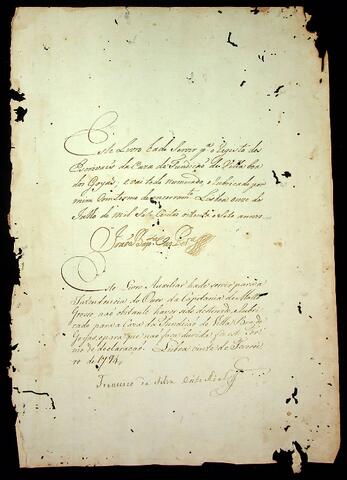 Este Livro hade servir p.ª o Registo dos
da Caza da Fundiçaõ de Villa boa
dos Goyáz; e vai todo numerado, e rubricado por
mim com termo de encerram.to Lisboa onze de
Julho de mil Sete Centos oitenta e Sete annos.
Este Livro Auxiliar hade servir para a
Intendencia do Ouro da Capitania de Matto
Grosso naõ obstante haver sido destinado, e rubri
cado para a Caza da Fundiçaõ de Villa Boa de
Goyás, e para que naõ faça duvida
mo de declaraçaõ. Lisboa vinte de Janei
ro de 1794.
Francisco da Silva